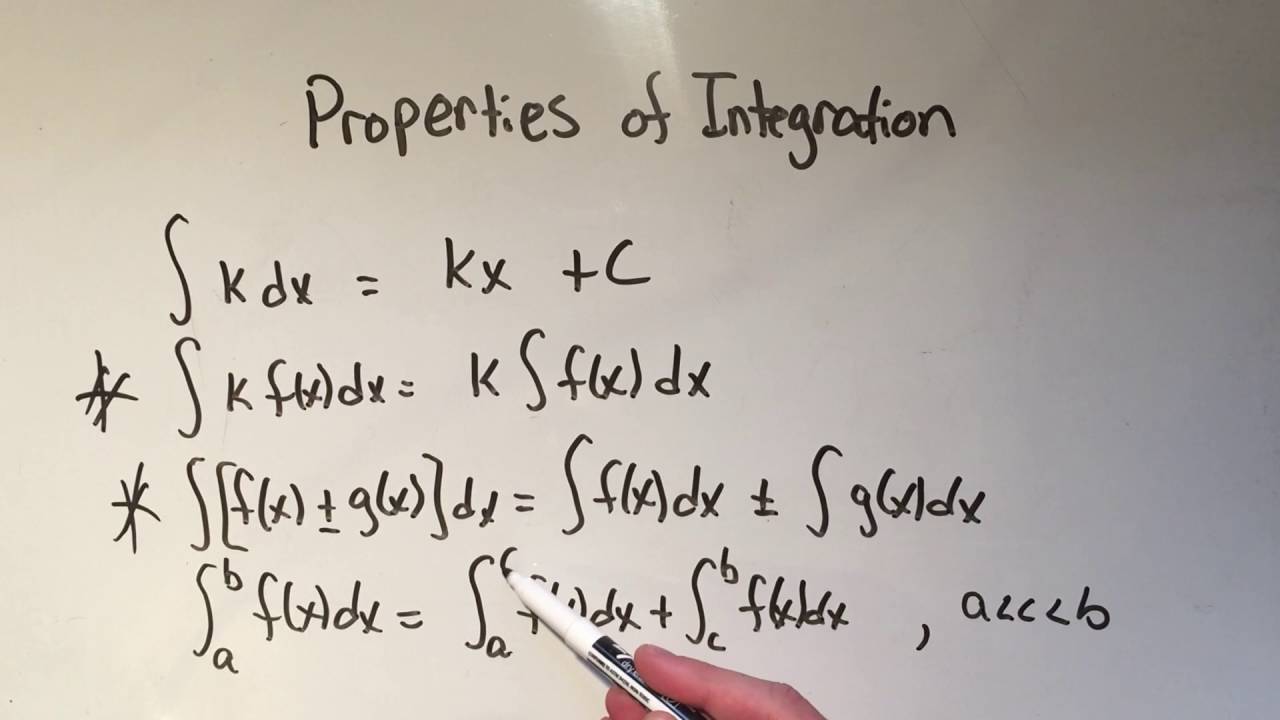 Properties of Integration
∫ k dx = kx + C
* ∫ k f(x) dx = k ∫ f(x) dx
* ∫ [f(x) ± g(x)] dx = ∫ f(x) dx ± ∫ g(x) dx
∫_a^b f(x) dx = ∫_a^c f(x) dx + ∫_c^b f(x) dx , a<c<b